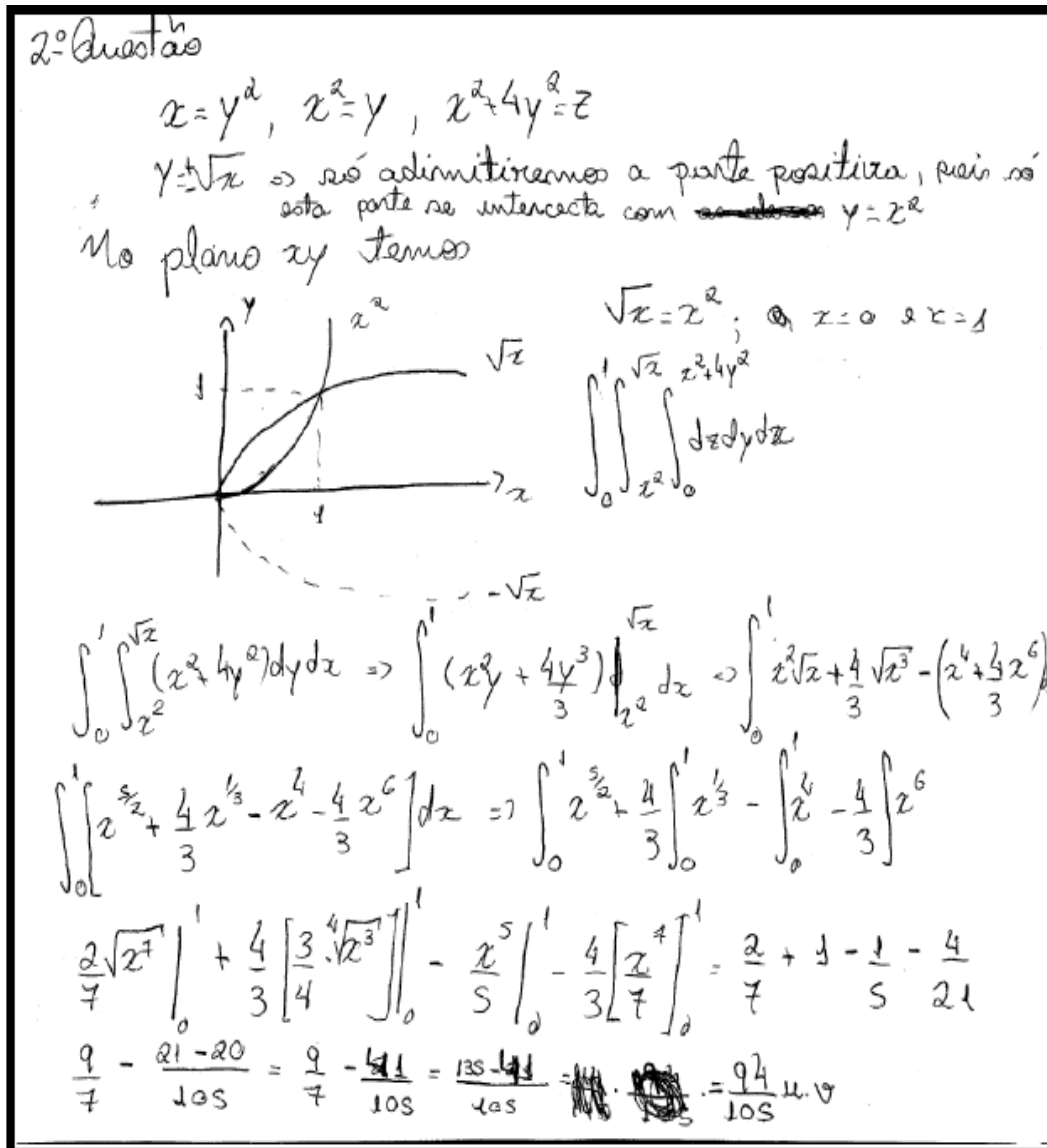 2º Questão
x = y², x² = y, x² + 4y² = z
y = ±√x => só adimitiremos a parte positiva, pois só
esta parte se intercecta com y = x²
No plano xy temos
y x² √x
1
x
1
-√x
√x = x²; x = 0 e x = 1
∫₀¹ ∫_{x²}^{√x} ∫₀^{x²+4y²} dz dy dx
∫₀¹ ∫_{x²}^{√x} (x² + 4y²) dy dx => ∫₀¹ (x²y + 4y³/3) |_{x²}^{√x} dx => ∫₀¹ x²√x + 4/3 √x³ - (x⁴ + 4/3 x⁶)
∫₀¹ [x^{5/2} + 4/3 x^{1/3} - x⁴ - 4/3 x⁶] dx => ∫₀¹ x^{5/2} + 4/3 ∫₀¹ x^{1/3} - ∫₀¹ x⁴ - 4/3 ∫ x⁶
2/7 √x⁷ |₀¹ + 4/3 [3/4 · ⁴√x³] |₀¹ - x⁵/5 |₀¹ - 4/3 [x⁷/7]₀¹ = 2/7 + 1 - 1/5 - 4/21
9/7 - 21 - 20/105 = 9/7 - 41/105 = 135 - 41/105 = 94/105 u.v